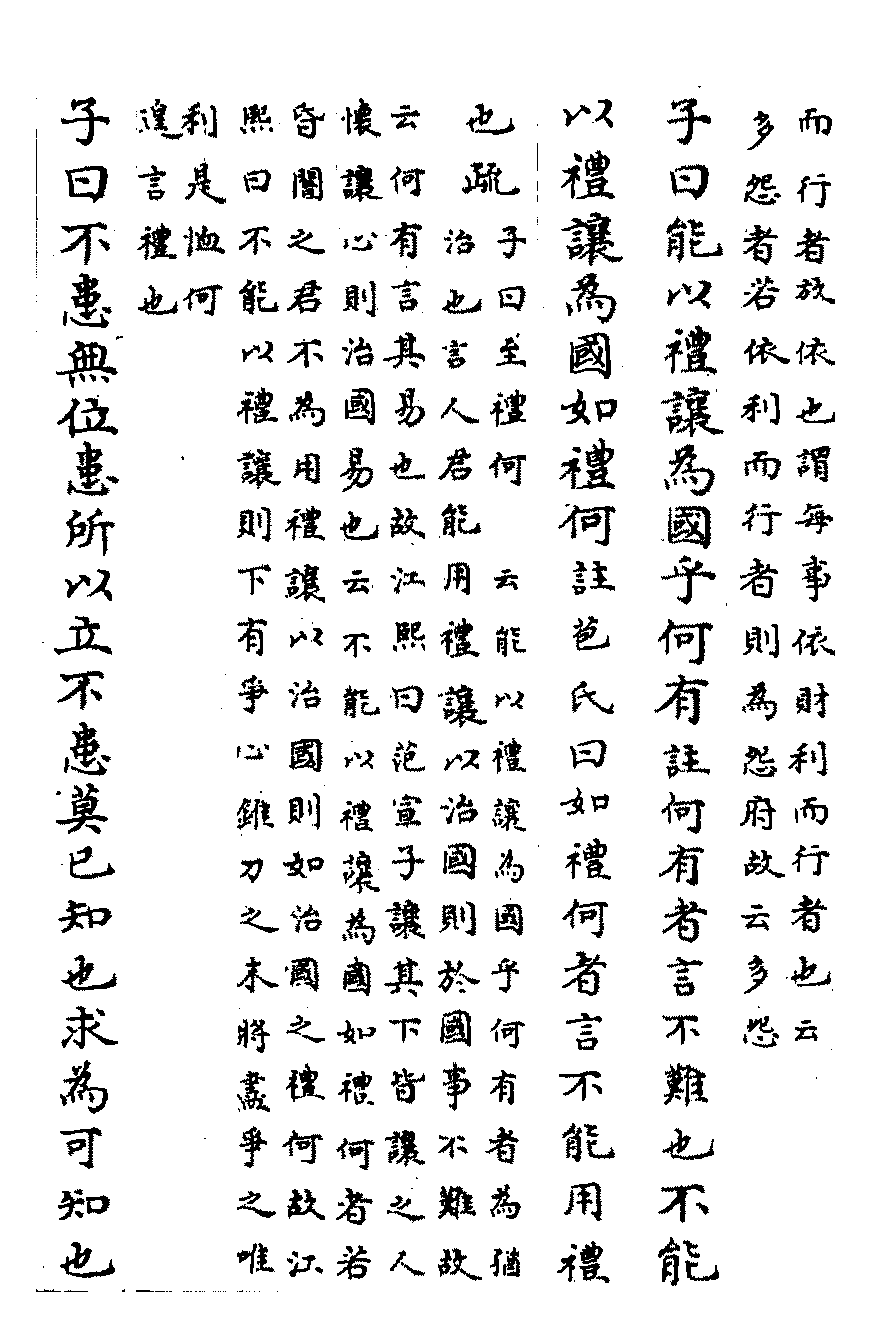 而行者放依也謂每事依財利而行者也云
多怨者若依利而行者則為怨府故云多怨
子曰能以禮讓為國乎何有註何有者言不難也不能
以禮讓為國如禮何註苞氏曰如禮何者言不能用禮
也疏
子曰至禮何 云能以禮讓為國乎何有者為猶
治也言人君能用禮讓以治國則於國事不難故
云何有言其易也故江熙曰范宣子讓其下皆讓之人
懷讓心則治國易也云不能以禮讓為國如禮何者若
昏闇之君不為用禮讓以治國則如治國之禮何故江
熙曰不能以禮讓則下有爭心錐刀之末將盡爭之唯
利是恤何
遑言禮也
子曰不患無位患所以立不患莫己知也求為可知也